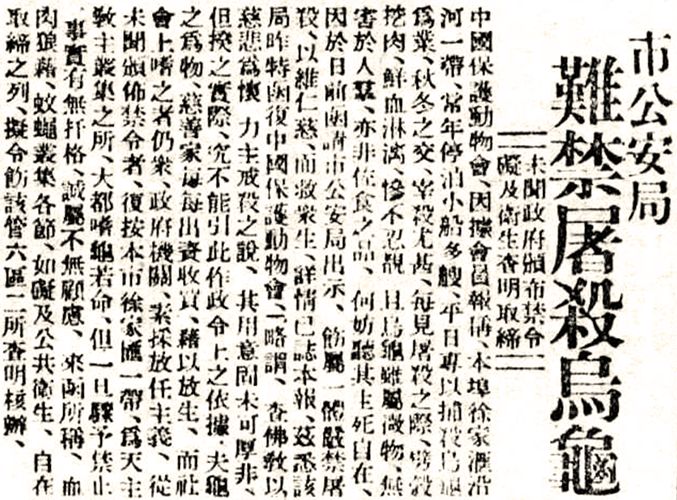 市公安局
難禁屠殺烏龜
未聞政府頒布禁令
礙及衛生查明取締
中國保護動物會、因據會員報稱、本埠徐家滙沿
河一帶、常年停泊小船多艘、平日專以捕殺烏龜
爲業、秋冬之交、宰殺尤甚、每見屠殺之際、劈殼
挖肉、鮮血淋漓、慘不忍覩、且烏龜雖屬微物、無
害於人羣、亦非佐食之品、何妨聽其生死自在、
因於日前函請市公安局出示、飭屬一體嚴禁屠
殺、以維仁慈、而救衆生、詳情已誌本報、茲悉該
局昨特函復中國保護動物會、略謂、查佛教以
慈悲爲懷、力主戒殺之說、其用意固未可厚非、
但揆之實際、究不能引此作政令上之依據、夫龜
之爲物、慈善家每每出資收買、藉以放生、而社
會上嗜之者仍衆、政府機關、素採放任主義、從
未聞頒佈禁令者、復按本市徐家匯一帶、爲天主
教主叢集之所、大都嗜龜若命、但一旦驟予禁止
事實有無扞格、誠屬不無顧慮、來函所稱、血
肉狼藉、蚊蠅叢集各節、如礙及公共衛生、自在
取締之列、擬令飭該管六區二所查明核辦、